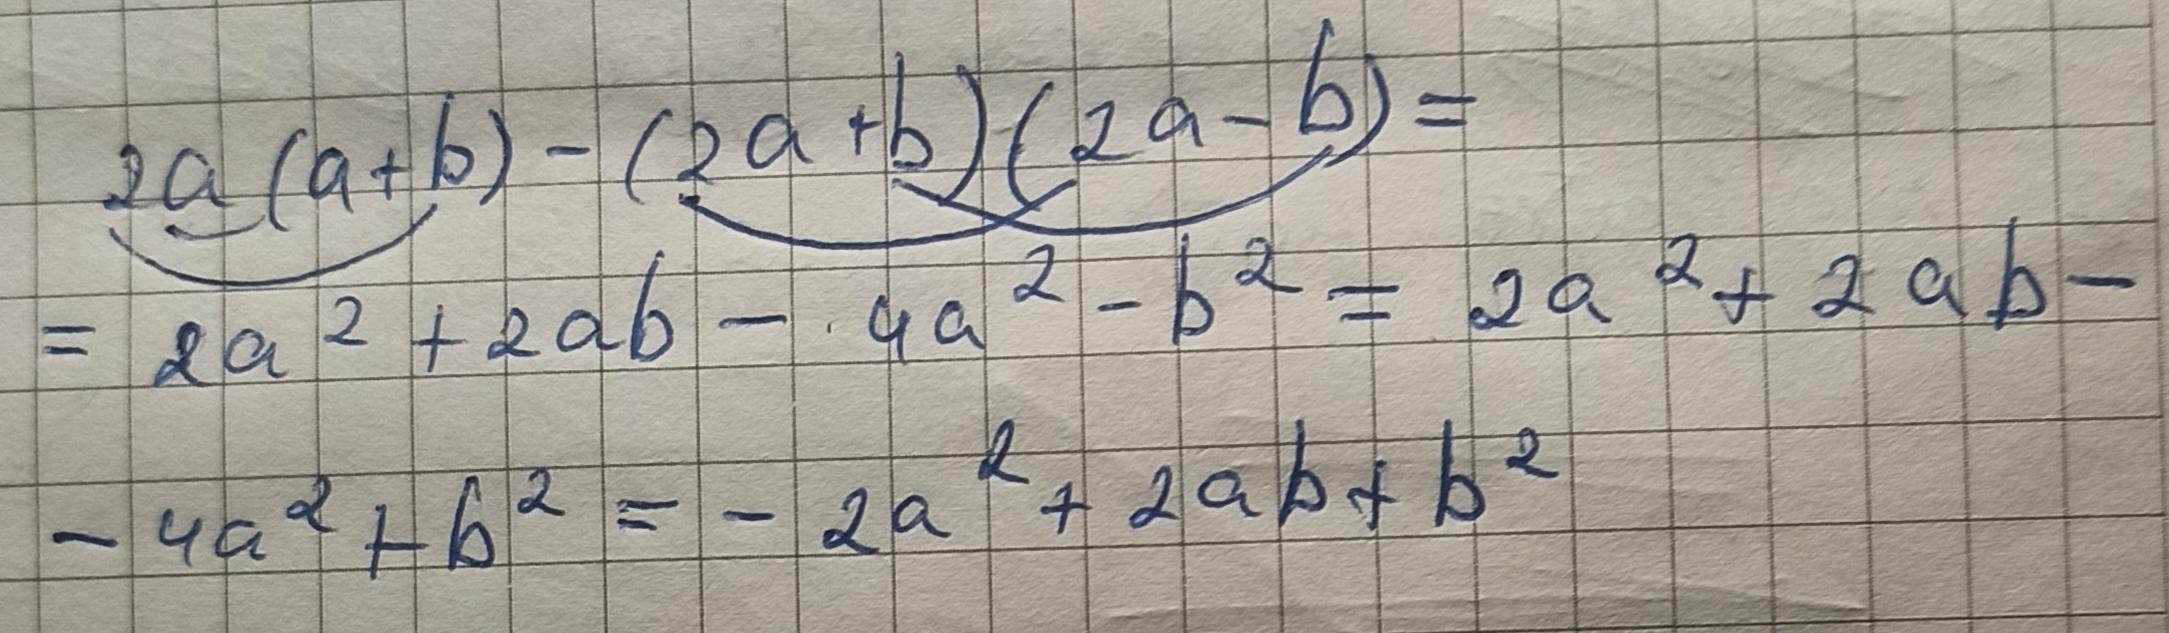 2a(a+b)-(2a+b)(2a-b)=
=2a²+2ab-4a²-b²=2a²+2ab-
-4a²+b²=-2a²+2ab+b²